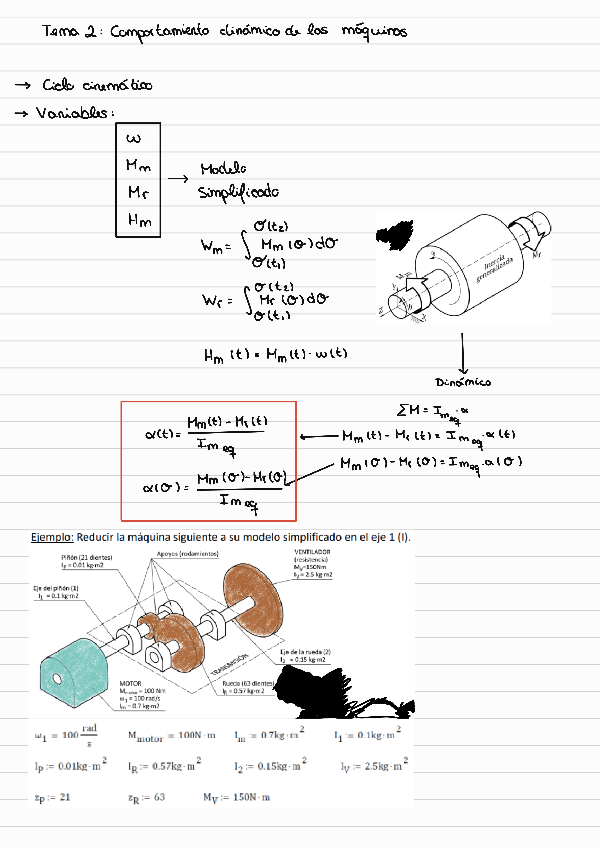 Tema 2: Comportamiento dinámico de las máquinas
→ Ciclo cinemático
→ Variables:
ω
Mm
Mr
Hm
→ Modelo
Simplificado
Wm = ∫ σ(t2) σ(t1) Mm (σ) dσ
Wr = ∫ σ(t2) σ(t1) Mr (σ) dσ
Inercia
generalizada
Mr
Hm (t) = Mm (t) · ω(t)
Dinámico
ΣM = Im eq · α
Mm (t) - Mr (t) = Im eq · α (t)
Mm (σ) - Mr (σ) = Im eq · α (σ)
α(t) = Mm(t) - Mr(t) / Im eq
α(σ) = Mm(σ) - Mr(σ) / Im eq
Ejemplo: Reducir la máquina siguiente a su modelo simplificado en el eje 1 (I).
Piñón (21 dientes)
IP = 0.01 kg·m2
Apoyos (rodamientos)
VENTILADOR
(resistencia)
MV=150Nm
IV = 2.5 kg·m2
Eje del piñón (1)
I1 = 0.1 kg·m2
Eje de la rueda (2)
I2 = 0.15 kg·m2
TRANSMISIÓN
Rueda (63 dientes)
IR = 0.57 kg·m2
MOTOR
Mmotor = 100 Nm
ω1 = 100 rad/s
Im = 0.7 kg·m2
ω1 := 100 rad/s Mmotor := 100N·m Im := 0.7kg·m² I1 := 0.1kg·m²
IP := 0.01kg·m² IR := 0.57kg·m² I2 := 0.15kg·m² IV := 2.5kg·m²
zP := 21 zR := 63 MV := 150N·m